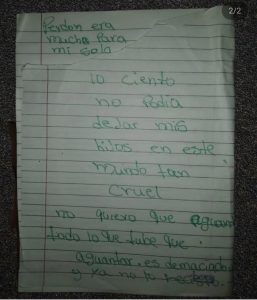 2/2
Perdon era
mucho para
mi solo
lo ciento
no Podia
dejar mis
hijos en este
mundo tan
cruel
no quiero que aguan
todo lo que tube que
aguantar, es demaciado
y ya no